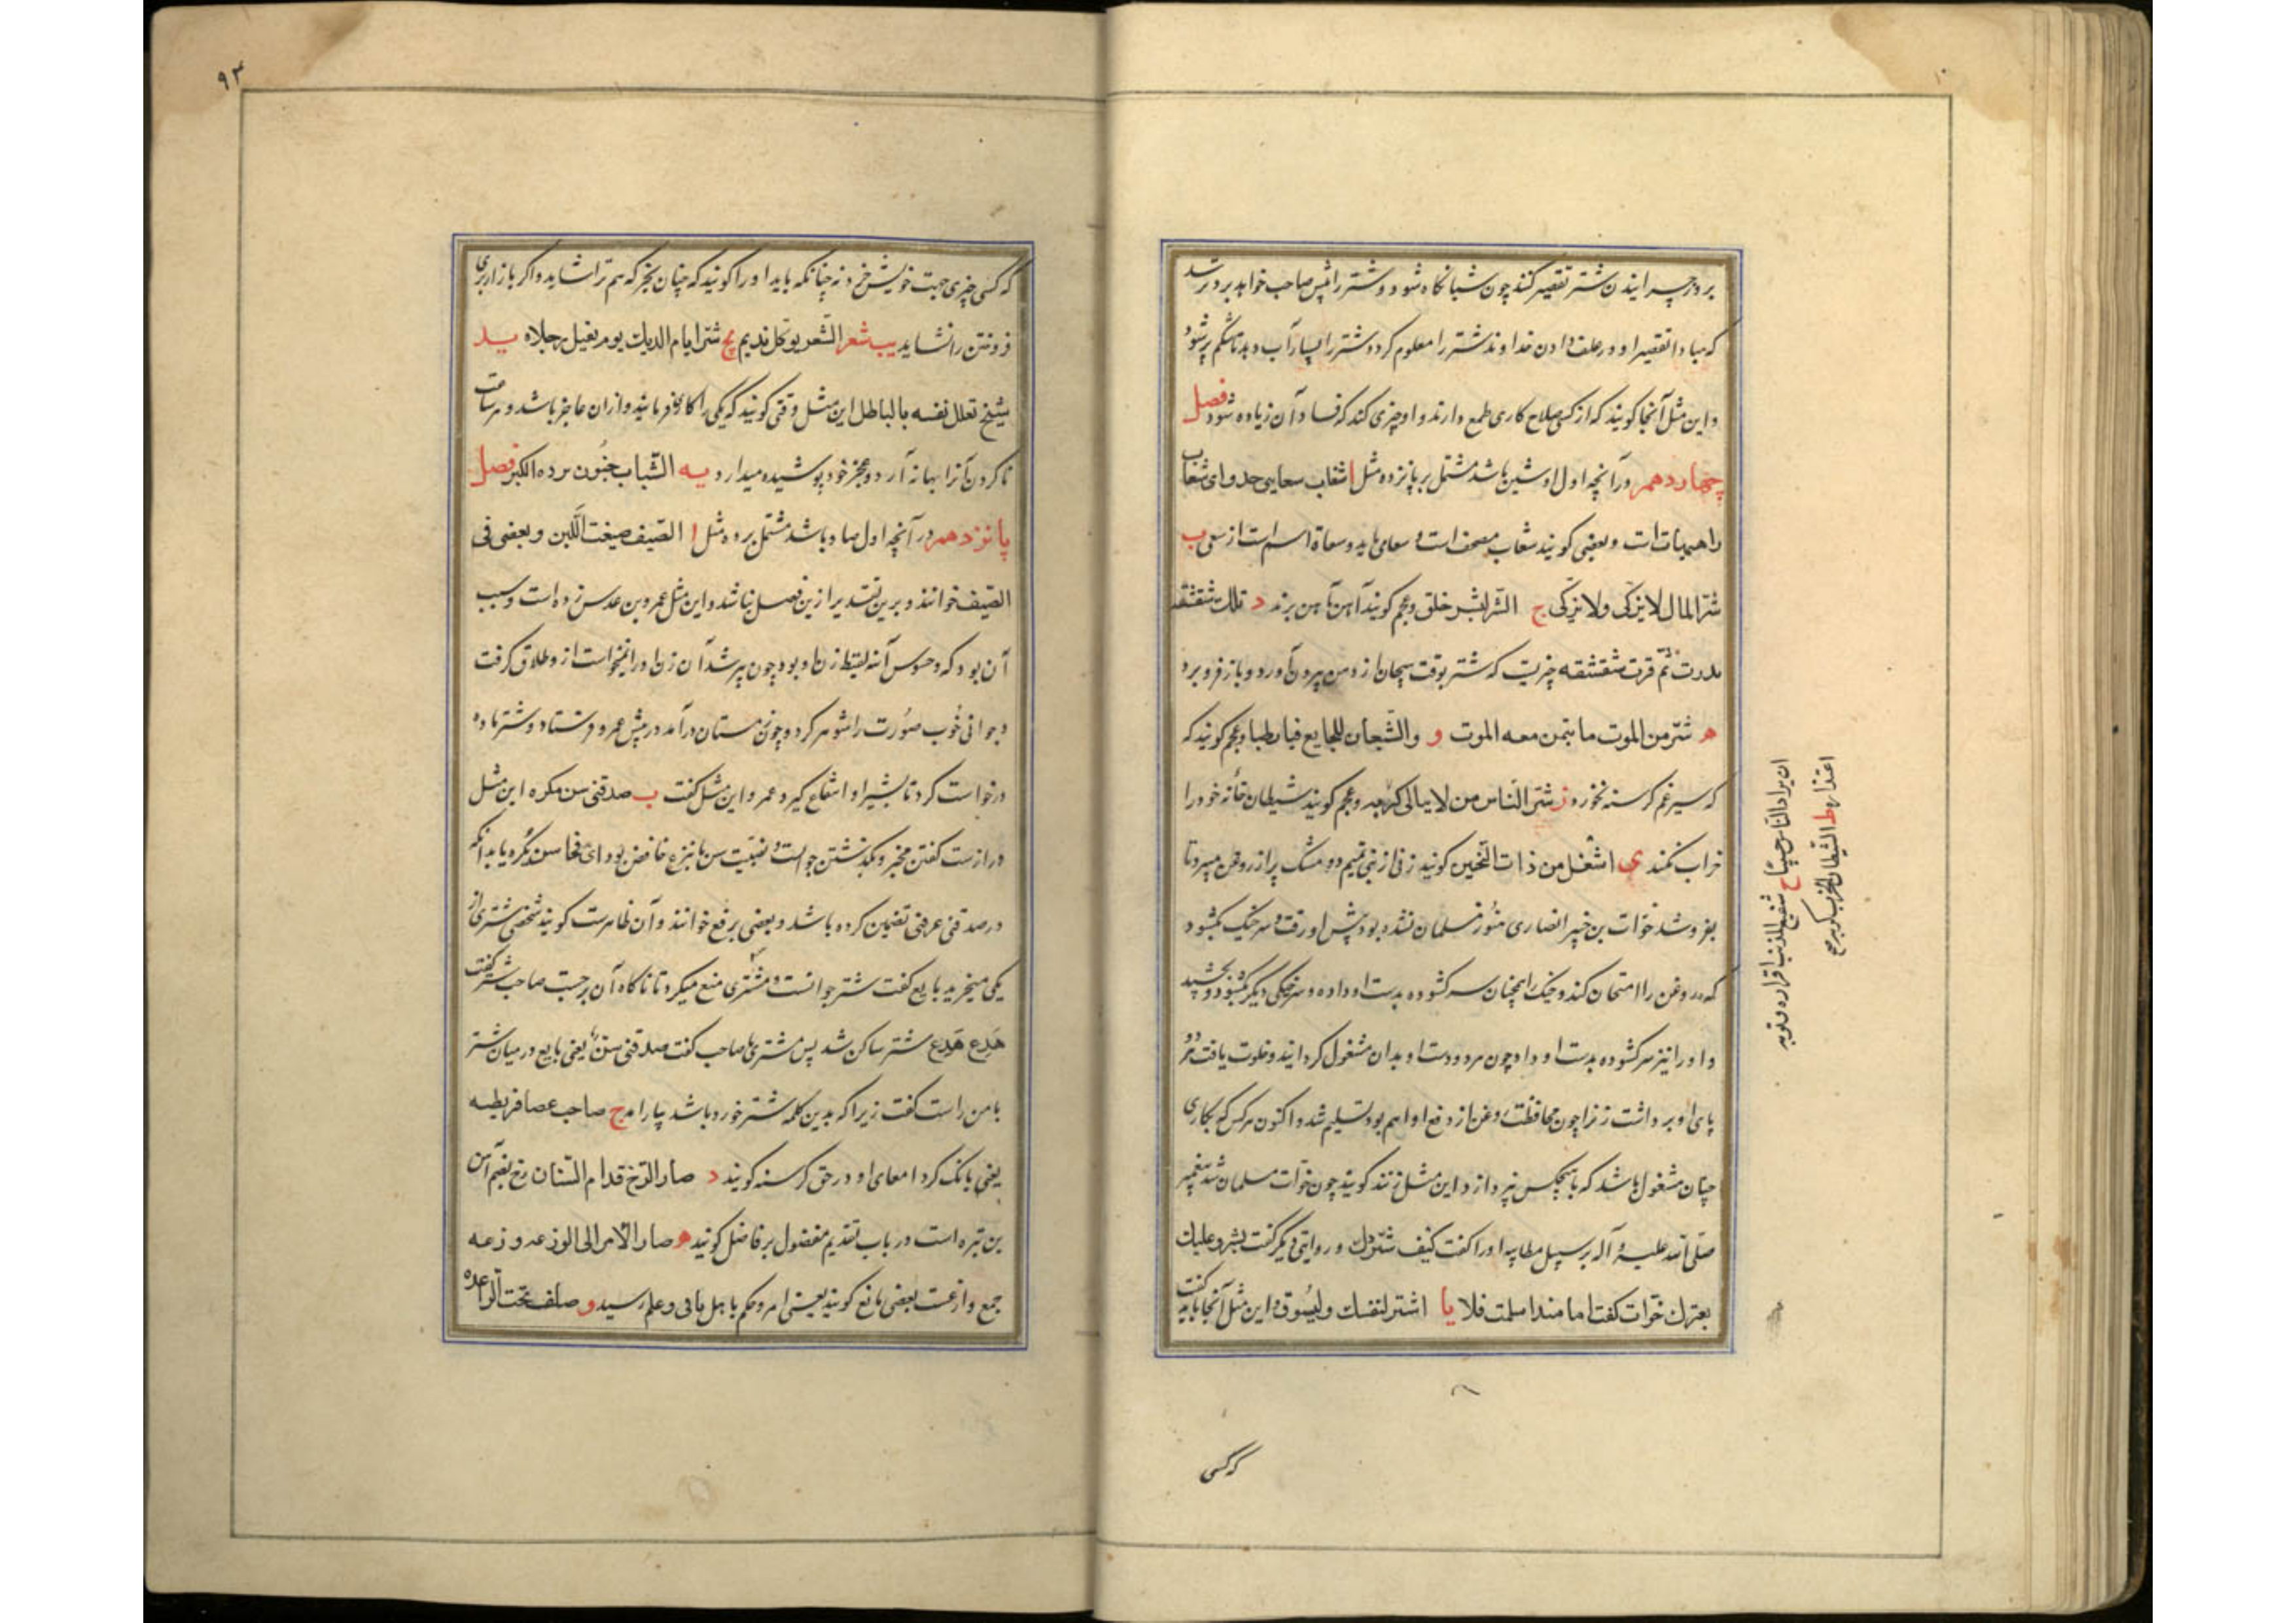 بروز چرانیدن شتر تقصیر کنند چون شبانگاه شود و شتر را پیش صاحب خواهد برد ترسد
که مبادا تقصیر او در علف دادن خداوند شتر را معلوم کردد شتر را بسیار آب دهد تا شکم پر شود
و این مثل آنجا کویند که از کسی صلاح کاری طمع دارند و او چیزی کند که فساد آن زیاده شود فصل
چهاردهم در آنچه اول او شین باشد مشتمل بر پانزده مثل ا شغاب سعایی جدوای شغاب
راهییات است و بعضی کویند شعاب مصحف است و سعای باید و سعاة اسم است از سعی ب
شر المال لا یزکی ولا یزکی ج الشر للشر خلق و عجم کویند آهن بآهن برند د تلک شقشقة
هدرت ثم قرت شقشقه چیزیست که شتر بوقت هیجان از دهن بیرون آورد و باز فرو برد
ه شر من الموت ما یتمن معه الموت و والشبعان للجایع فیان طبا و عجم کویند که
که سیر غم کرسنه نخورد ز شر الناس من لا یبالی و عجم کویند شیطان خانه خود را
خراب نکمند ی اشغل من ذات النحیین کویند زنی از بنی تمیم دو مشک پر از روغن میبرد تا
بفروشد خوات بن جبیر انصاری هنوز مسلمان نشده بود پیش او رفت و سر خیک بکشود
که روغن را امتحان کند و خیک را همچنان سر کشوده بدست او داده و سر خیکی دیکر بکشود و بچشید
و او را نیز سر کشوده بدست او داد چون هر دو دست او بدان مشغول کردانید و خلوت یافت هر دو
پای او برداشت زن را چون محافظت روغن از دفع او اهم بود تسلیم شد و اکنون هر کس که بکاری
چنان مشغول باشد که با هیچکس نپردازد این مثل زنند کویند چون خوات مسلمان شد پیغمبر
صلی الله علیه و آله بر سبیل مطایبه او را کفت کیف شرودک و روایتی دیکر کفت بشرد علیک
بعیرک خوات کفت اما منذ اسلمت فلا یا اشتر لنفسک و للسوق و این مثل آنجا باید کفت
که کسی
ان یراه الناس مسیئا ح شفیع المذنب اقراره و توبه
اعتذاره ط الشیطان لا یخرب کرمه صح
۹۳
که کسی چیزی جهت خویش خرد نه چنانکه باید او را کویند که چنان بخر که هم ترا شاید و اکر بازار بری
فروختن را شاید یب شعر الشعر یوکل ندیم یج شر ایام الدیک یوم یغسل رجلاه ید
شیخ یعلل نفسه بالباطل این مثل وقتی کویند که یکی را کاری فرمایند و از ان عاجز باشد و هر ساعت
ناکردن آنرا بهانه آرد و عجز خود پوشیده میدارد یه الشباب جنون برءه الکبر فصل
پانزدهم در آنچه اول صاد باشد مشتمل بر ده مثل ا الصیف ضیعت اللبن و بعضی فی
الصیف خوانند و برین تقدیر از ین فصل نباشد و این مثل عمرو بن عدس زده است و سبب
آن بود که دختنوس آنه لقیط زن او بود چون پیر شد آن زن او را نمیخواست از و طلاق کرفت
و جوانی خوب صورت را شوهر کرد و چون زمستان درآمد در پیش عمرو فرستاد و شتر ماده
درخواست کرد تا بشیر او انتفاع کیرد عمرو این مثل کفت ب صدقنی سن بکره این مثل
در راست کفتن مخبر و بکه نشتن جوالست و نصبیت سن بانزع خافض بود ای فی سن بکره یا بدانکه
در صدقنی عرفنی تضمین کرده باشد و بعضی برفع خوانند و آن ظاهرست کویند شخصی شتری از
یکی میخرید بایع کفت شتر جوانست و مشتری منع میکرد تا ناکاه آن برجست صاحب شتر کفت
هدع هدع شتر ساکن شد پس مشتری با صاحب کفت صدقنی سن یعنی بایع در میان شتر
با من راست کفت زیرا که بدین کلمه شتر خورد باشد پیارامد ج صاحت عصافر بطنه
یعنی بانک کرد امعای او در حق کرسنه کویند د صار الزج قدام السنان زج بضم آهن
بن نیزه است در باب تقدیم مفضول بر فاضل کویند ه صار الامر الی الوزعة وزعه
جمع وازعست بعضی مانع کویند یعنی امر و حکم با اهل باقی و علم رسید و صلف تحت الراعده